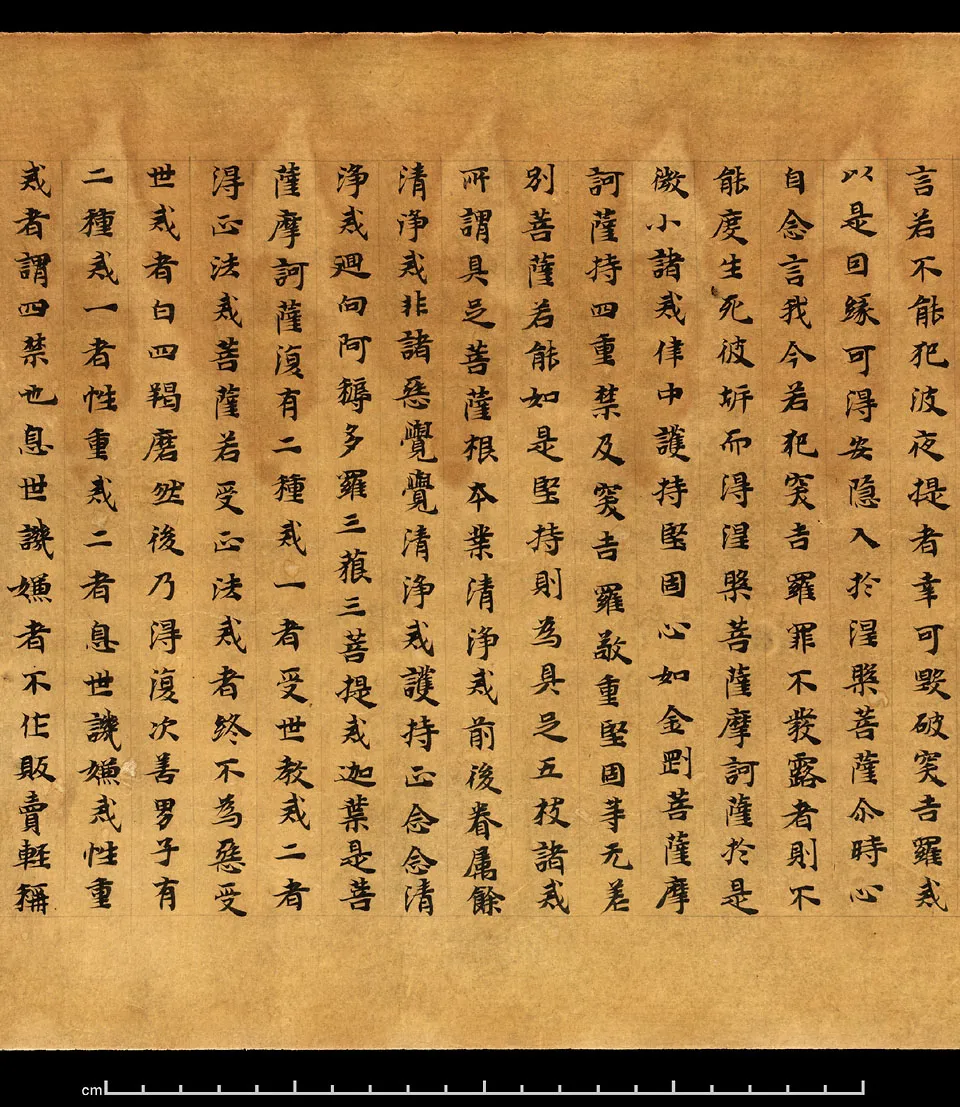 言若不能犯波夜提者幸可毀破突吉羅戒
以是因緣可得安隱入於涅槃菩薩尒時心
自念言我今若犯突吉羅罪不發露者則不
能度生死彼岸而得涅槃菩薩摩訶薩於是
微小諸戒律中護持堅固心如金剛菩薩摩
訶薩持四重禁及突吉羅敬重堅固等无差
別菩薩若能如是堅持則為具足五枝諸戒
所謂具足菩薩根本業清淨戒前後眷屬餘
清淨戒非諸惡覺覺清淨戒護持正念念清
淨戒迴向阿耨多羅三藐三菩提戒迦葉是菩
薩摩訶薩復有二種戒一者受世教戒二者
得正法戒菩薩若受正法戒者終不為惡受
世戒者白四羯磨然後乃得復次善男子有
二種戒一者性重戒二者息世譏嫌戒性重
戒者謂四禁也息世譏嫌者不作販賣輕稱
cm